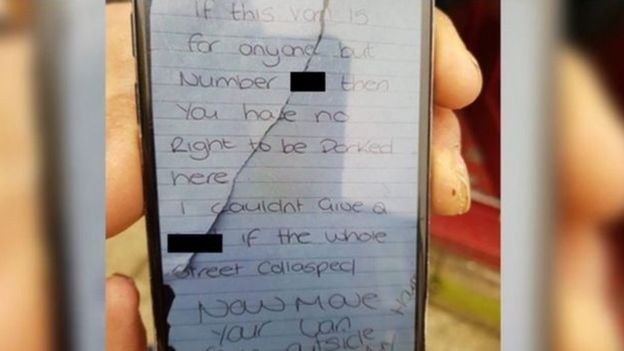 If this van is
for anyone but
Number then
You have no
Right to be Parked
here
I couldnt Give a
if the whole
street collasped
Now Move
Your Van
outside